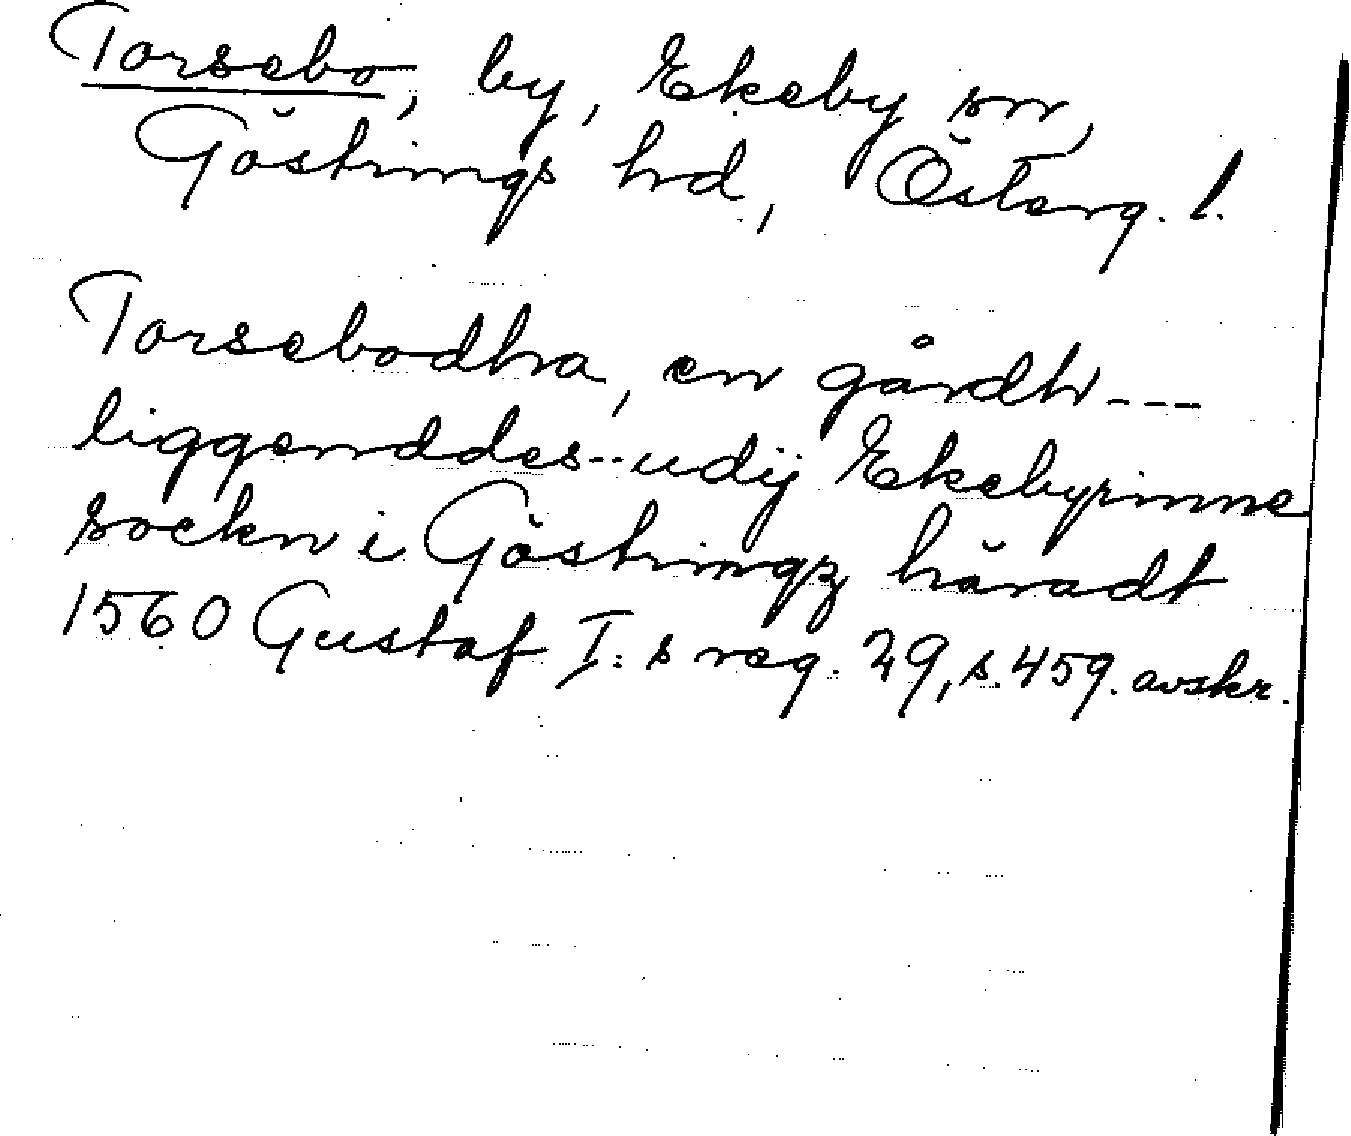 Torsebo, by, Ekeby sn,
Göstrings hrd, Österg. l.
Torsebodha, en gårdh ---
liggenddes -- udij Ekebyrinne
sockn i Göstringz häradt
1560 Gustaf I:s reg. 29, s. 459. avskr.